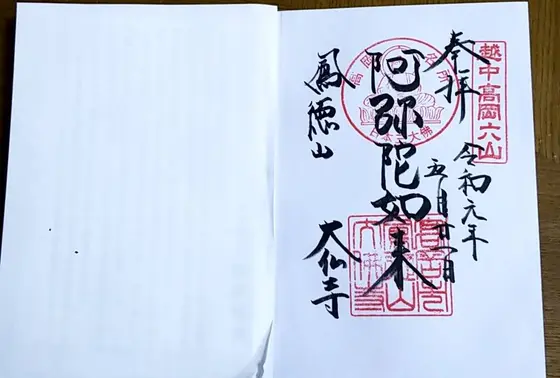 越中高岡六山
奉拝
令和元年
五月廿一日
阿弥陀如来
日本三大佛
鳳徳山
大仏寺